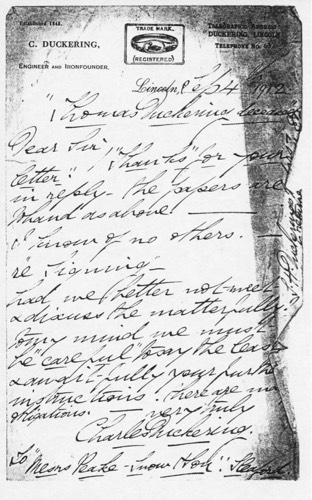 Established 1845.
TRADE MARK.
(REGISTERED)
TELEGRAPHIC ADDRESS
DUCKERING, LINCOLN
TELEPHONE No.
C. DUCKERING,
ENGINEER AND IRONFOUNDER.
Lincoln, Sep 4 1912
"Thomas Duckering deceased
Dear Sir,
"Thanks" for your
letter"
in reply - the papers are
to hand as above
I know of no others.
re signing -
had we better not meet
& discuss the matter fully.
to my mind we must
be "careful" to say the least
& await fully your further
instructions. There are no
obligations.
very truly
Charles Duckering.
To "Messrs Peake Snow &
Sleaford